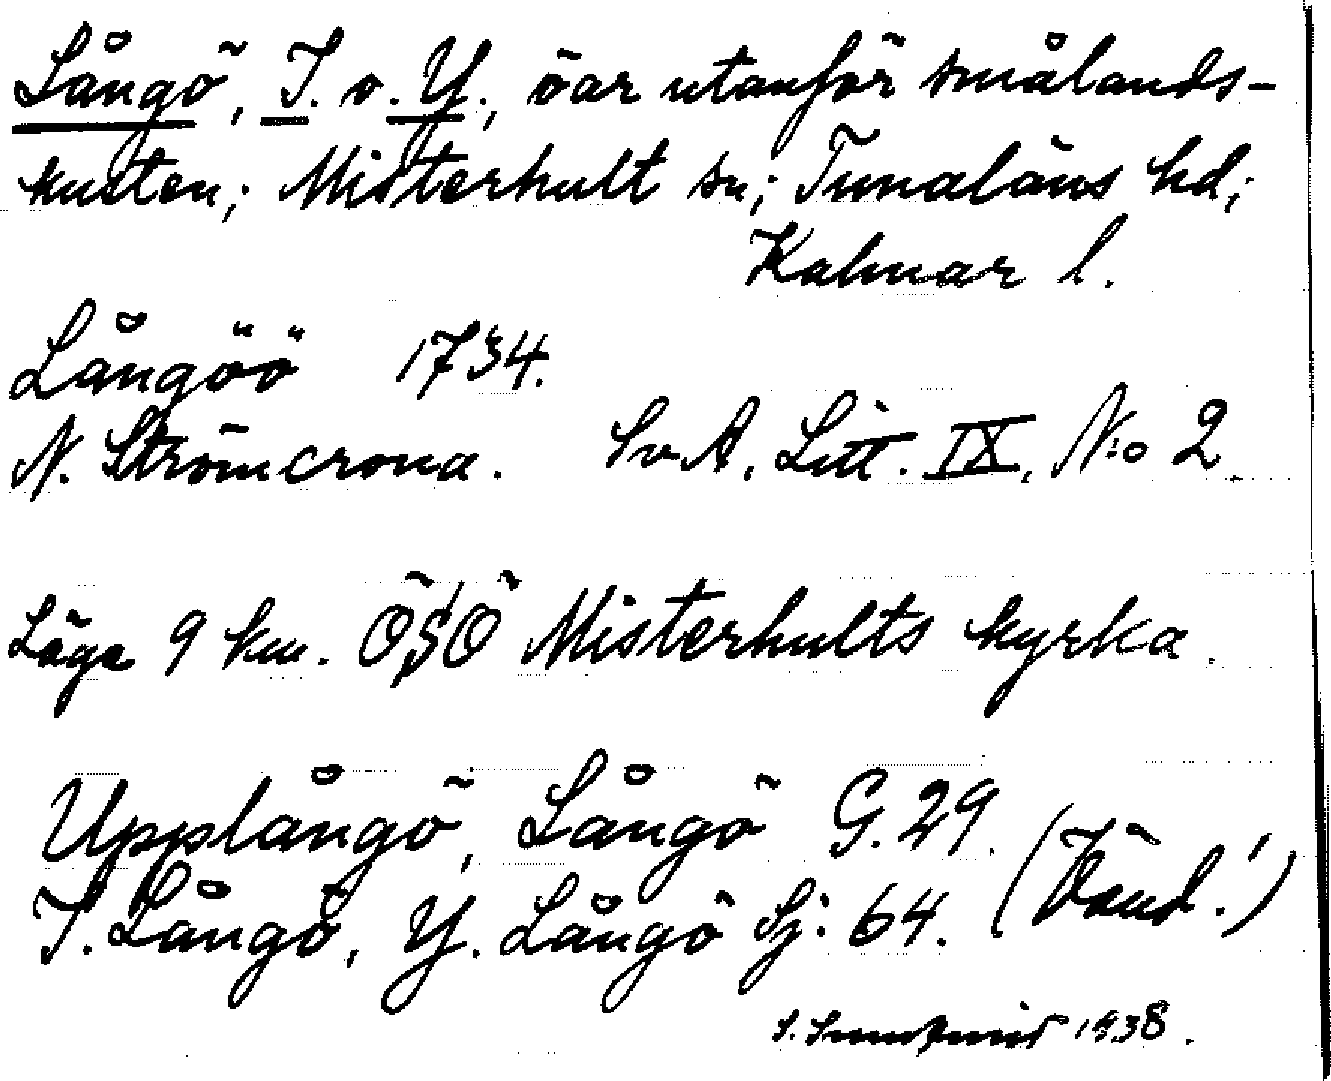 Långö, I. o. Y., öar utanför smålands-
kusten; Misterhult sn; Tunaläns hd;
Kalmar l.
Långöö 1734.
N. Strömcrona. Sv A. Litt. IX, N:o 2.
Läge 9 km. ÖSÖ Misterhults kyrka.
Upplångö, Långö G. 29.
I. Långö, Y. Långö Sj: 64. (Vänd!)
1938.